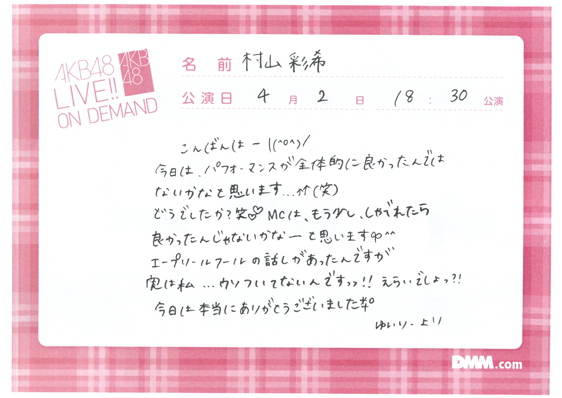 AKB48
LIVE!!
ON DEMAND
AKB
48
名 前 村山 彩希
公演日 4 月 2 日 18 : 30 公演
こんばんはー!(^o^)/
今日は、パフォーマンスが全体的に良かったんでは
ないかなと思います…↑↑(笑)
どうでしたか?笑 MCは、もう少し、しゃべれたら
良かったんじゃないかなーと思います^^
エープリールフールの話しがあったんですが
実は私…ウソついてないんですっっ!! えらいでしょっ?!
今日は本当にありがとうございました
ゆいりーより
DMM.com